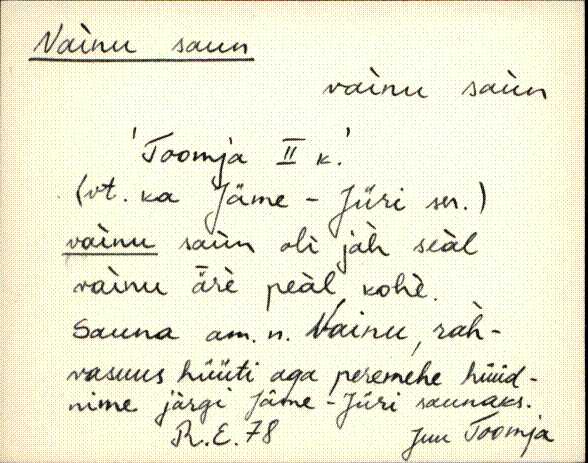 Vainu saun
vàinu saùn
'Toomja II k.'
(vt. ka Jäme - Jüri sn.)
vàinu saùn oli jàh seàl
vàinu ärè peàl kohè.
Sauna am. n. Vainu, rah-
vasuus hüüti aga peremehe hüüd-
nime järgi Jäme-Jüri saunaks.
R.E. 78 Juu Toomja